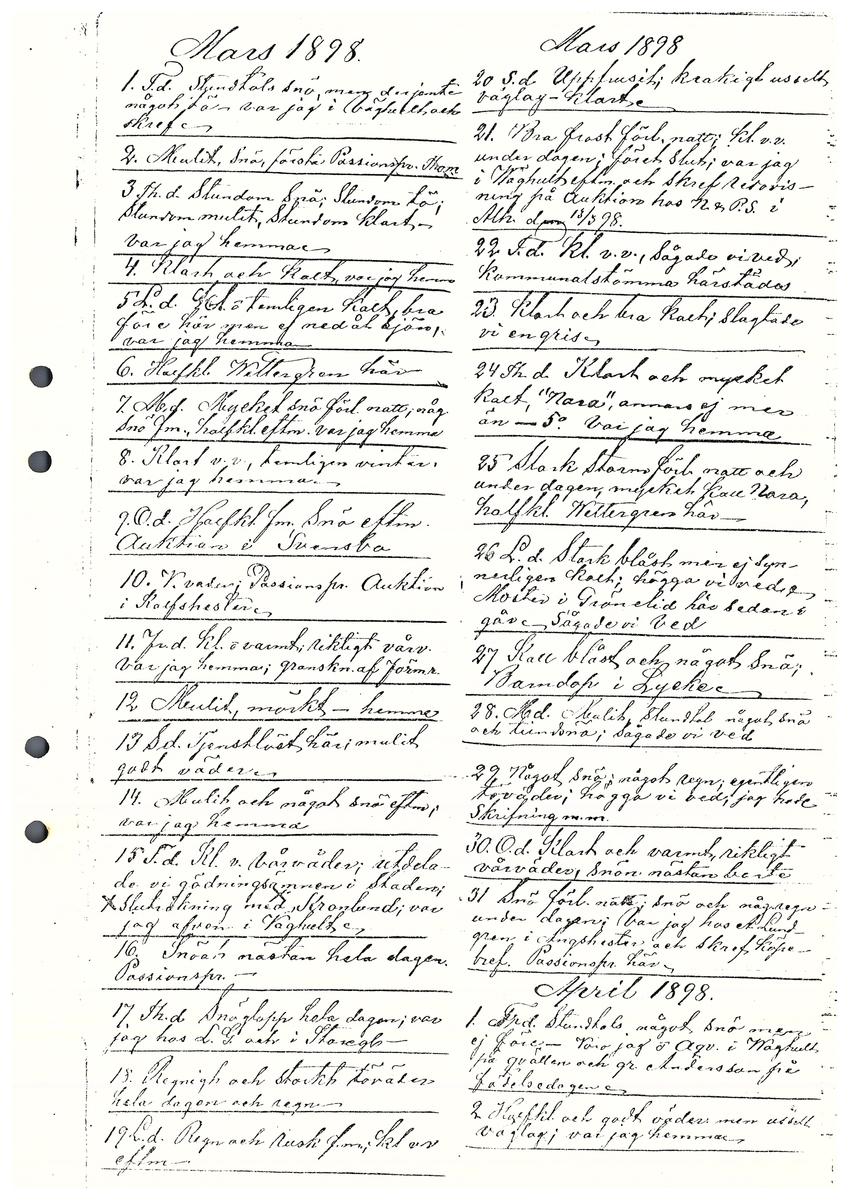 Mars 1898.
1. T.d. Stundtals snö, men derjemte
något tö - var jag i Väghult och
skref
2. Mulit, Snö, första Passionspr.
3 Th.d. Stundom Snö; Stundom tö;
Stundom mulit, Stundom klart -
var jag hemma
4. Klart och kalt, var jag hemma
5 L.d. Kl. ö temligen kalt, bra
före här men ej nedåt sjön,
var jag hemma
6. Halfkl. Wettergren här
7. M.d. Mycket snö förl. natt; någ
snö fm., halfkl. eftm. var jag hemma
8. Klart v.v., temligen vinter;
var jag hemma
9. O.d. Halfkl. fm. Snö eftm.
Auktion i Svensbo
10. V. väder; Passionspr. Auktion
i Rolfshester
11. Fr.d. kl. o varmt; riktigt vårv.
var jag hemma; granskn. af Förmr.
12 Mulit, mörkt - hemma
13 Sd. Tjenstlöst här; mulit
godt väder
14. Mulit och något snö eftm;
var jag hemma
15 T.d. Kl. v. Vårväder; utdela-
de vi gödningsämnen i Staden;
X Sluträkning med Kronlund; var
jag äfven i Väghult
16. Snöar nästan hela dagen.
Passionspr. -
17 Th.d Snöglopp hela dagen; var
jag hos L. G. och i
18. Regnigt och starkt töväder
hela dagen och regn
19 L.d. Regn och rusk f.m.; kl v v
eftm -
Mars 1898
20 S.d. Uppfruset; krakigt uselt
väglag - klart
21. Bra frost förl. natt; kl. v.v.
under dagen; före slut; var jag
i Väghult eftm. och skref redovis-
ning på Auktion hos N. & P.S. i
Alh. d 18/3 98.
22 T.d. kl. v.v., Sågade vi ved;
Kommunalstämma härstädes
23. Klart och bra kalt; slagtade
vi en gris
24 Th.d Klart och mycket
kalt, "Nara", annars ej mer
än - 5° Var jag hemma
25 Stark Storm förl. natt och
under dagen, mycket kall Nara,
halfkl. Wettergren här -
26 L.d. Stark blåst men ej syn-
nerligen kalt; högga vi ved;
Moster i Grönelid här sedan i
går Sågade vi ved
27 Kall blåst och något snö;
Barndop i Lycke
28. M.d. Mulit, stundtal något snö
och tunnsnö; sågade vi ved
29 Något snö; något regn; egentligen
töväder; högga vi ved; jag hade
skrifning m.m.
30. O.d. Klart och varmt, riktigt
vårväder, snön nästan borta
31 Snö förl. natt; snö och någ regn
under dagen; Var jag hos A Lund-
gren i Ängshester och skref köpe-
bref. Passionspr här
April 1898.
1. Frd. Stundtals något snö men
ej före - Voro jag o Agv. i Wäghult
på qvällen och gr. Andersson på
födelsedagen
2 Halfkl och godt väder men uselt
väglag; var jag hemma